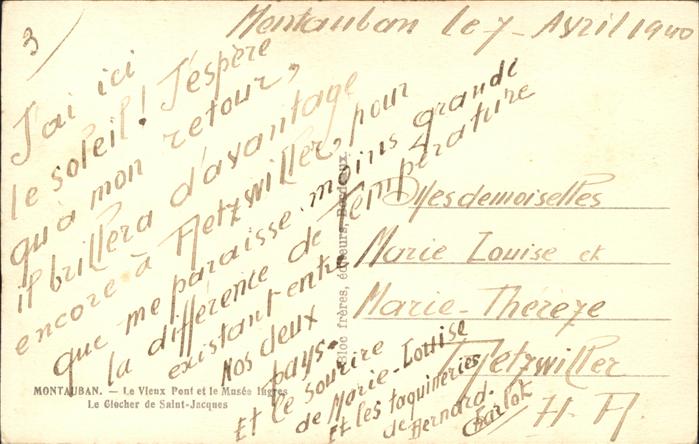 3/
Montauban le 7 - Avril 1940
J'ai ici
le soleil! J'espère
qu'à mon retour,
il brillera d'avantage
encore à Metzwiller, pour
que me paraisse moins grande
la différence de température
existant entre
Nos deux
pays.
Et le sourire
de Marie-Louise
Et les taquineries
de Bernard.
Charlot
Mesdemoiselles
Marie Louise et
Marie-Thérèze
Metzwiller
H-R
Bloc frères, éditeurs, Bordeaux.
MONTAUBAN. — Le Vieux Pont et le Musée Ingres
Le Clocher de Saint-Jacques